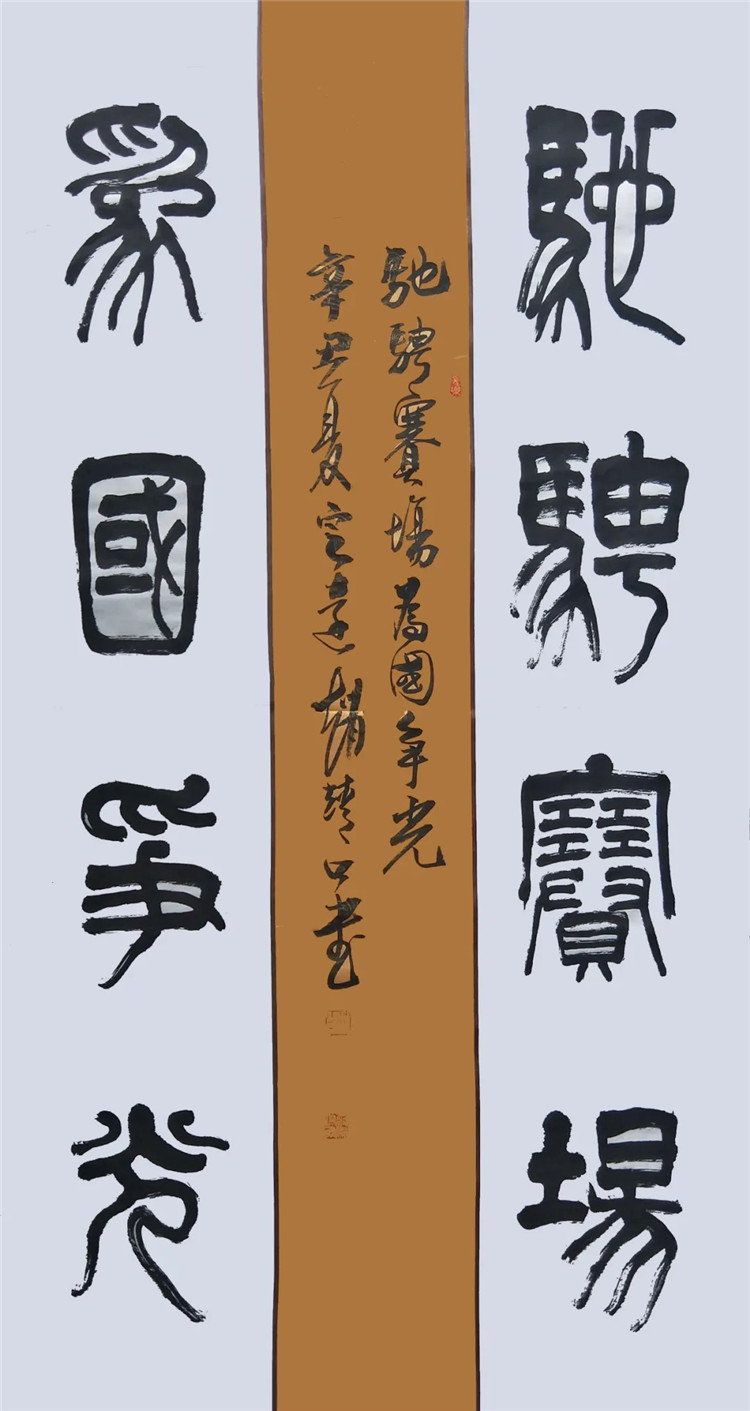 馳騁賽場
馳騁賽場為國争光
辛丑夏書
爲國爭光